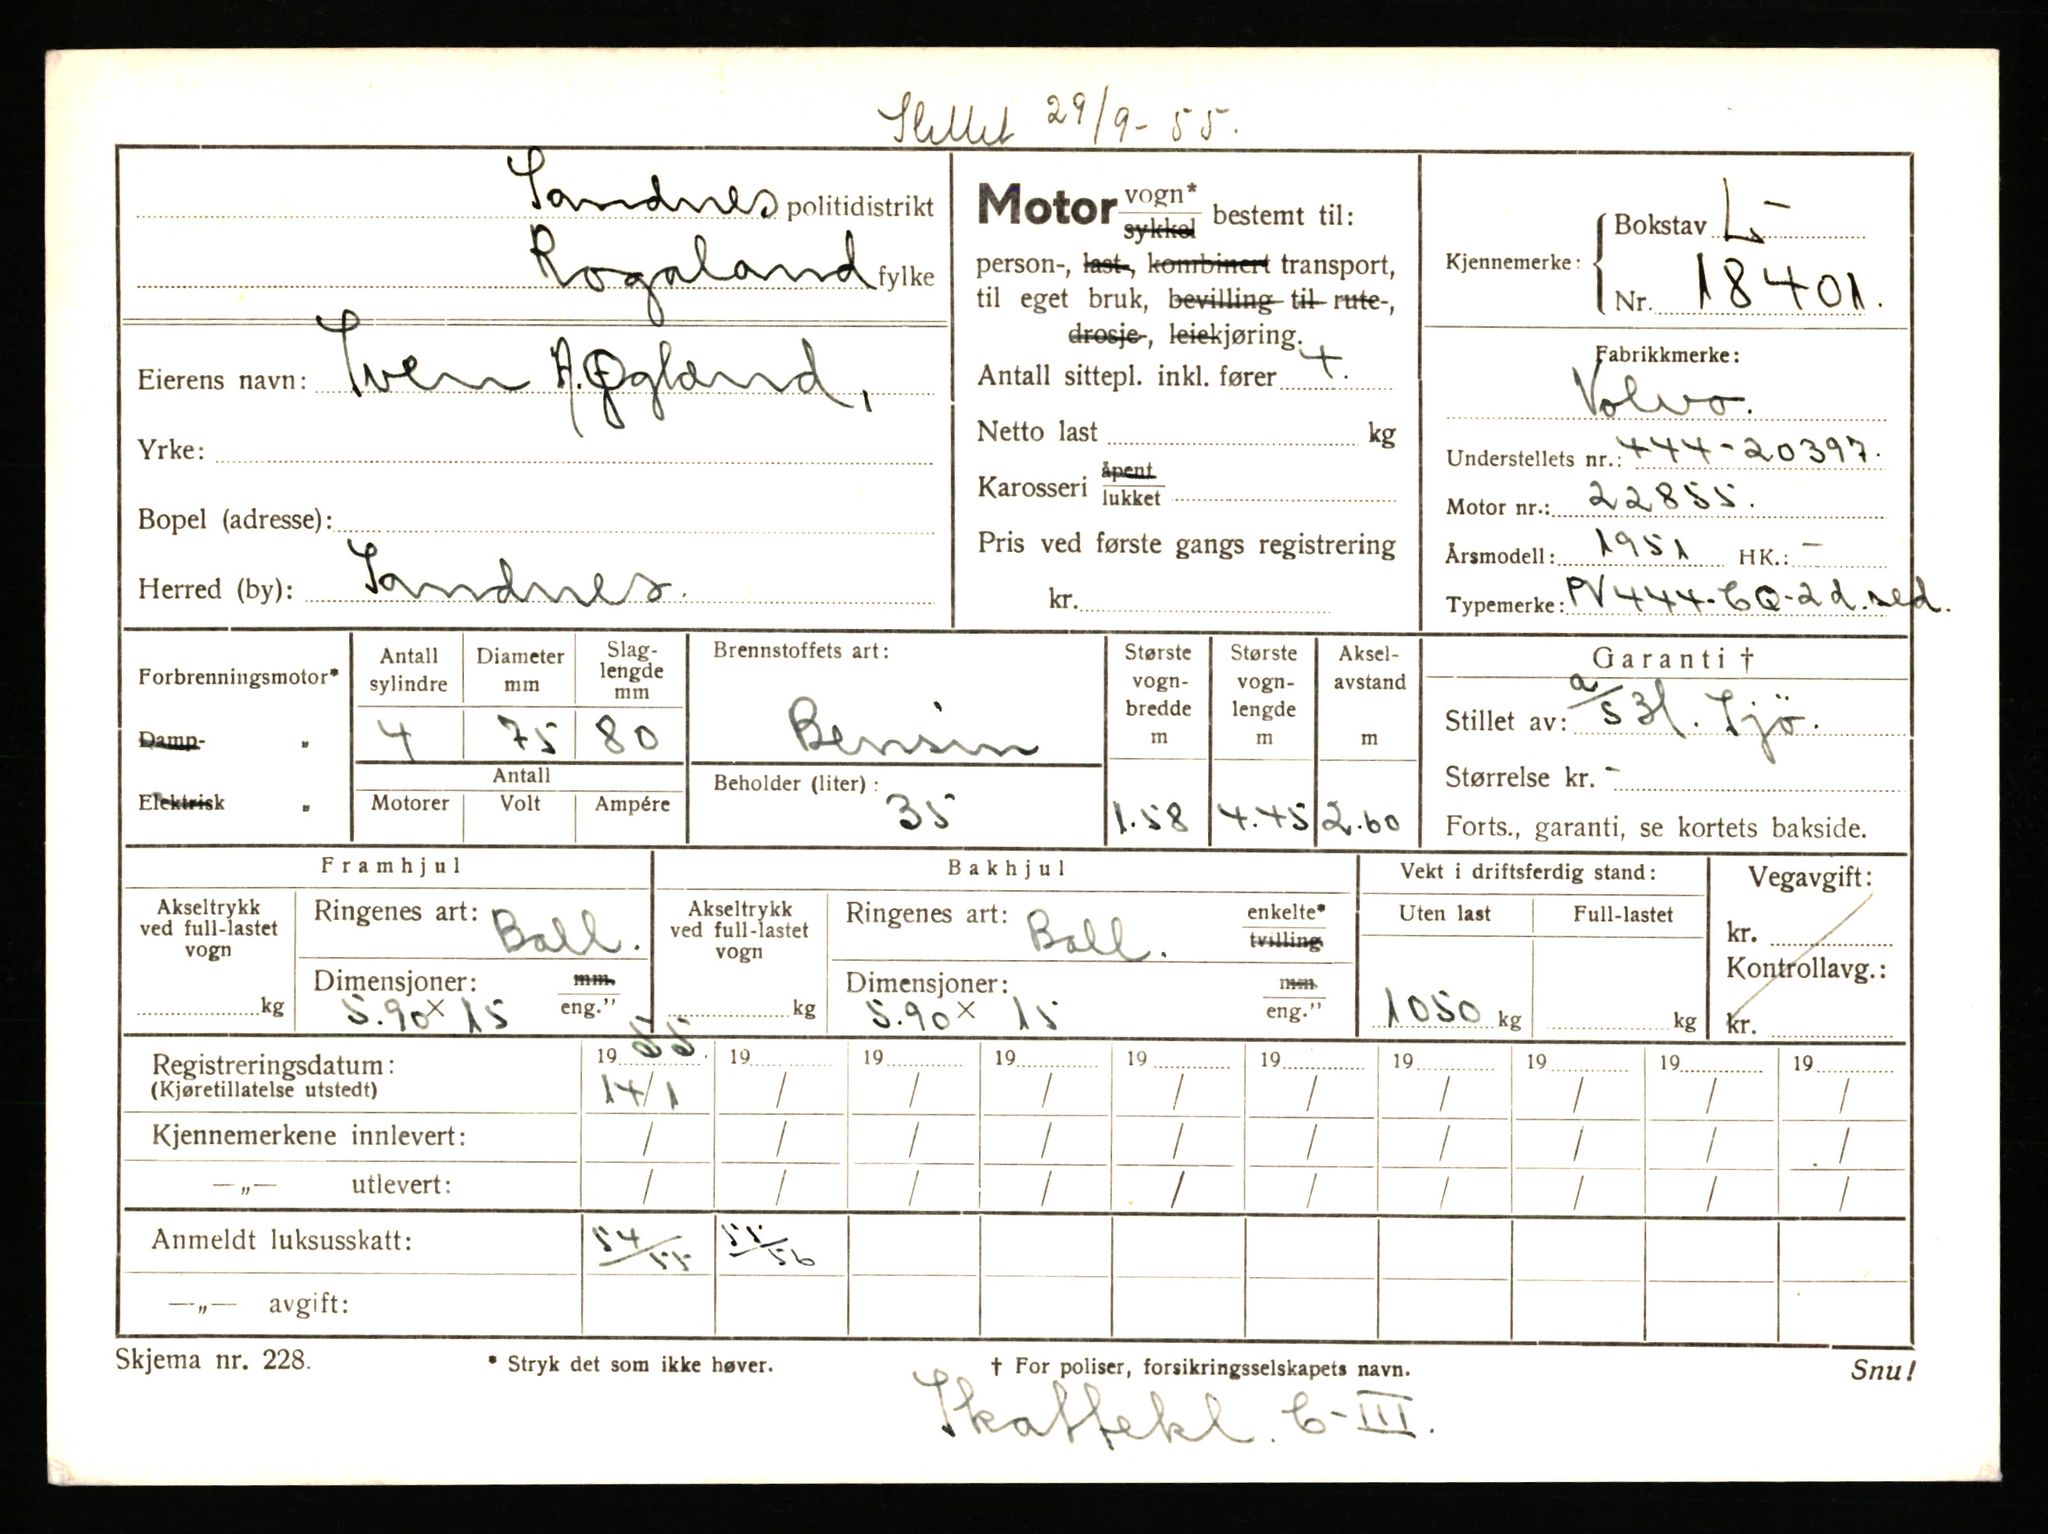 Slettet 29/9-55.
Sandnes politidistrikt
Rogaland fylke
Eierens navn: Sven A. Øgland,
Yrke:
Bopel (adresse):
Herred (by): Sandnes.
Motor vogn* / sykkel bestemt til:
person-, last-, kombinert transport,
til eget bruk, bevilling til rute-,
drosje-, leiekjøring.
Antall sittepl. inkl. fører 4.
Netto last kg
Karosseri åpent / lukket
Pris ved første gangs registrering
kr.
Kjennemerke: Bokstav L-
Nr. 18401.
Fabrikkmerke:
Volvo.
Understellets nr.: 444-20397.
Motor nr.: 22855.
Årsmodell: 1951 HK.: -
Typemerke: PV444-CQ-2d.sed.
Forbrenningsmotor*
Damp- „
Elektrisk „
Antall sylindre
4
Diameter mm
75
Slag-lengde mm
80
Antall
Motorer Volt Ampére
Brennstoffets art:
Bensin
Beholder (liter):
35
Største vogn-bredde m
1.58
Største vogn-lengde m
4.45
Aksel-avstand m
2.60
Garanti †
Stillet av: a/s Sjö.
Størrelse kr. -
Forts., garanti, se kortets bakside.
Framhjul
Akseltrykk ved full-lastet vogn
kg
Ringenes art: Ball.
Dimensjoner: mm / eng."
5.90 x 15
Bakhjul
Akseltrykk ved full-lastet vogn
kg
Ringenes art: Ball. enkelte* / tvilling
Dimensjoner: mm / eng."
5.90 x 15
Vekt i driftsferdig stand:
Uten last Full-lastet
1050 kg kg
Vegavgift:
kr.
Kontrollavg.:
kr.
Registreringsdatum: 19 55. 19 19 19 19 19 19 19 19 19
(Kjøretillatelse utstedt) 14/1 / / / / / / / / /
Kjennemerkene innlevert: / / / / / / / / / /
—„— utlevert: / / / / / / / / / /
Anmeldt luksusskatt: 54/55 55/56
—„— avgift:
Skjema nr. 228. * Stryk det som ikke høver. † For poliser, forsikringsselskapets navn. Snu!
Skattekl. C-III.